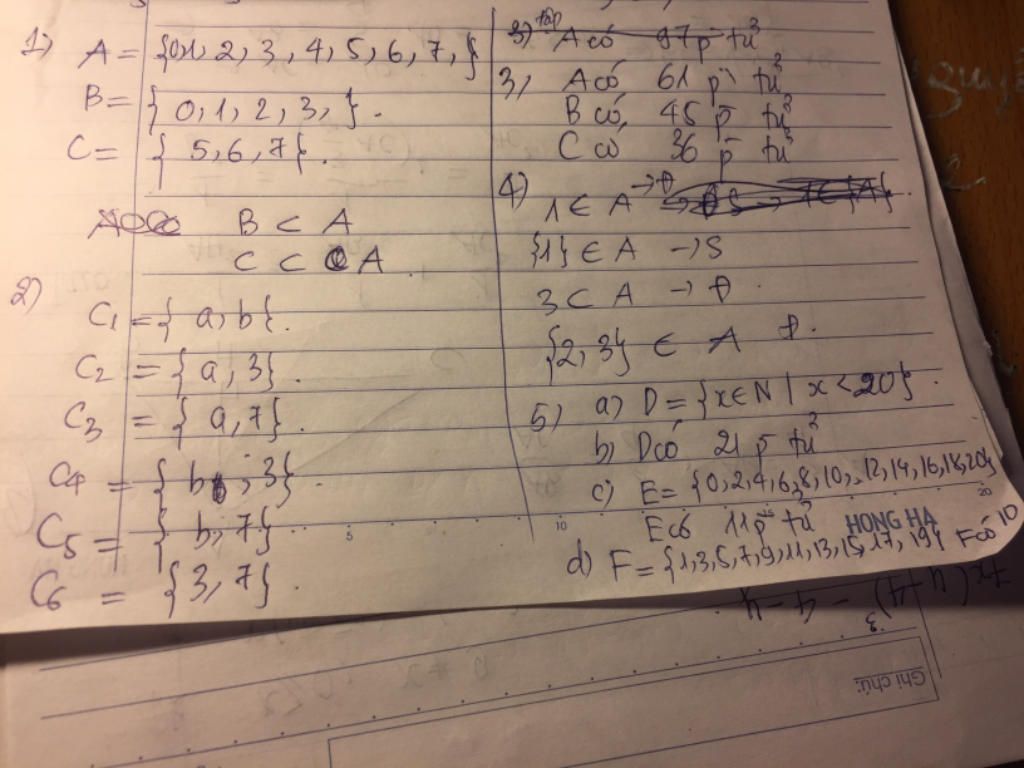 1) A = {0,1, 2, 3, 4, 5, 6, 7, }
B = { 0, 1, 2, 3, } .
C = { 5, 6, 7 } .
B ⊂ A
C ⊂ A .
2)
C1 = { a, b } .
C2 = { a, 3 } .
C3 = { a, 7 } .
C4 = { b , 3 } .
C5 = { b, 7 }
C6 = { 3, 7 } .
3) tập A có 97 p tử
3, A có 61 p tử
B có 45 p tử
C có 36 p tử
4)
1 ∈ A → Đ
{1} ∈ A → S
3 ⊂ A → Đ .
{2, 3} ∈ A Đ .
5) a) D = {x ∈ N | x < 20} .
b) D có 21 p tử
c) E = {0, 2, 4, 6, 8, 10, 12, 14, 16, 18, 20}
E có 11 p tử
d) F = {1, 3, 5, 7, 9, 11, 13, 15, 17, 19} F có 10
5 10 20
HONG HA
Ghi chú: